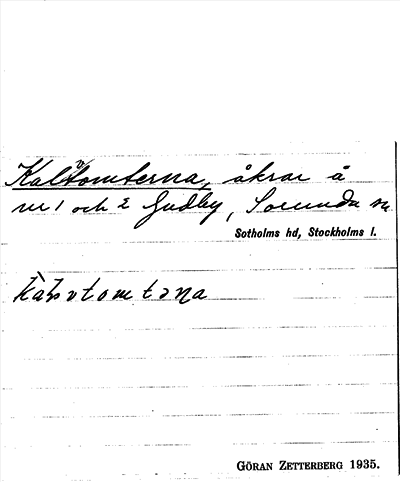 Kalvtomterna, åkrar å
nr 1 och 2 Gudby, Sorunda sn
Sotholms hd, Stockholms l.
kàlvtomtəna
GÖRAN ZETTERBERG 1935.